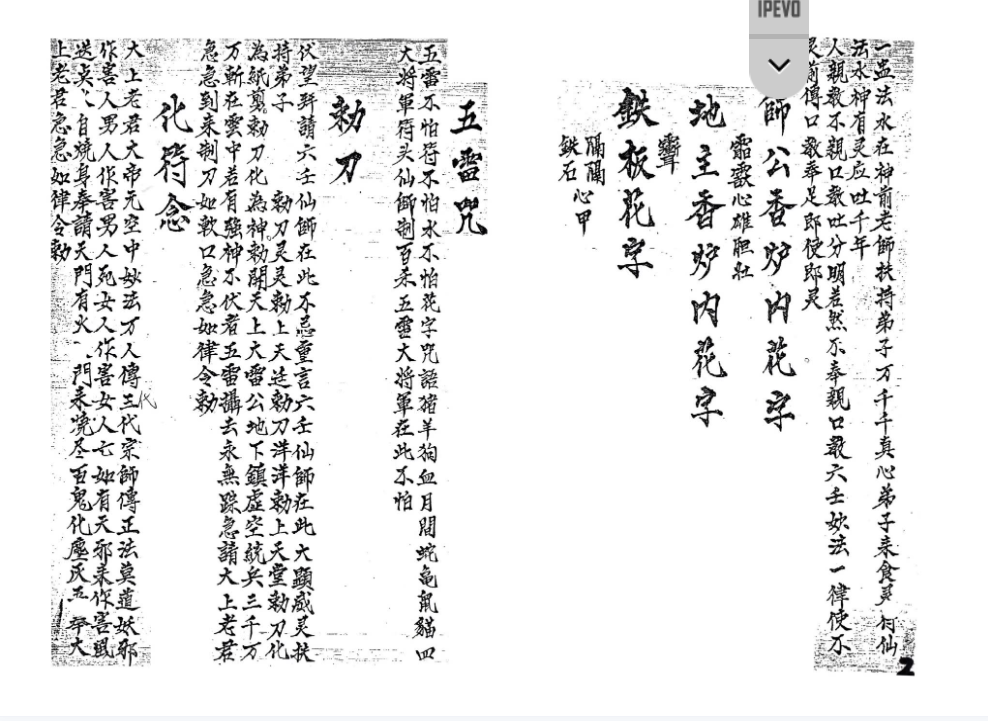 IPEVO
一盆法水在神前老師扶持弟子万千千真心弟子来食灵 仙
法水神有灵应吐千年
人親教不親口教吐分明若然不奉親口教六壬妙法一律使不
灵前傳口教奉足即使即灵
師公香炉内花字
心雄胆壯
地主香炉内花字
鉄板花字
隔隔心甲
鉄石
五雷咒
五雷不怕符不怕水不怕花字咒語猪羊狗血月間蛇龟鼠貓四
大将軍符头仙師制百杀五雷大将軍在此不怕
勅刀
伏望拜請六壬仙師在此不忌重言六壬仙師在此大顕感灵扶
持弟子 勅刀灵灵勅上天廷勅刀洋洋勅上天堂勅刀化
為紙剪勅刀化為神勅開天上大雷公地下鎮虚空統兵三千万
万斬在雲中若有強神不伏者五雷攝去永無踪急請大上老君
急急到来制刀如敕口急急如律令勅
化符念
大上老君大帝元空中妙法万人傳三代宗師傳正法莫道妖邪
代
作害人男人作害男人死女人作害女人亡如有天邪来作害風
送矣人自燒身奉請天門有火 門来燒尽百鬼化塵灰五 奉大
上老君急急如律令勅
2